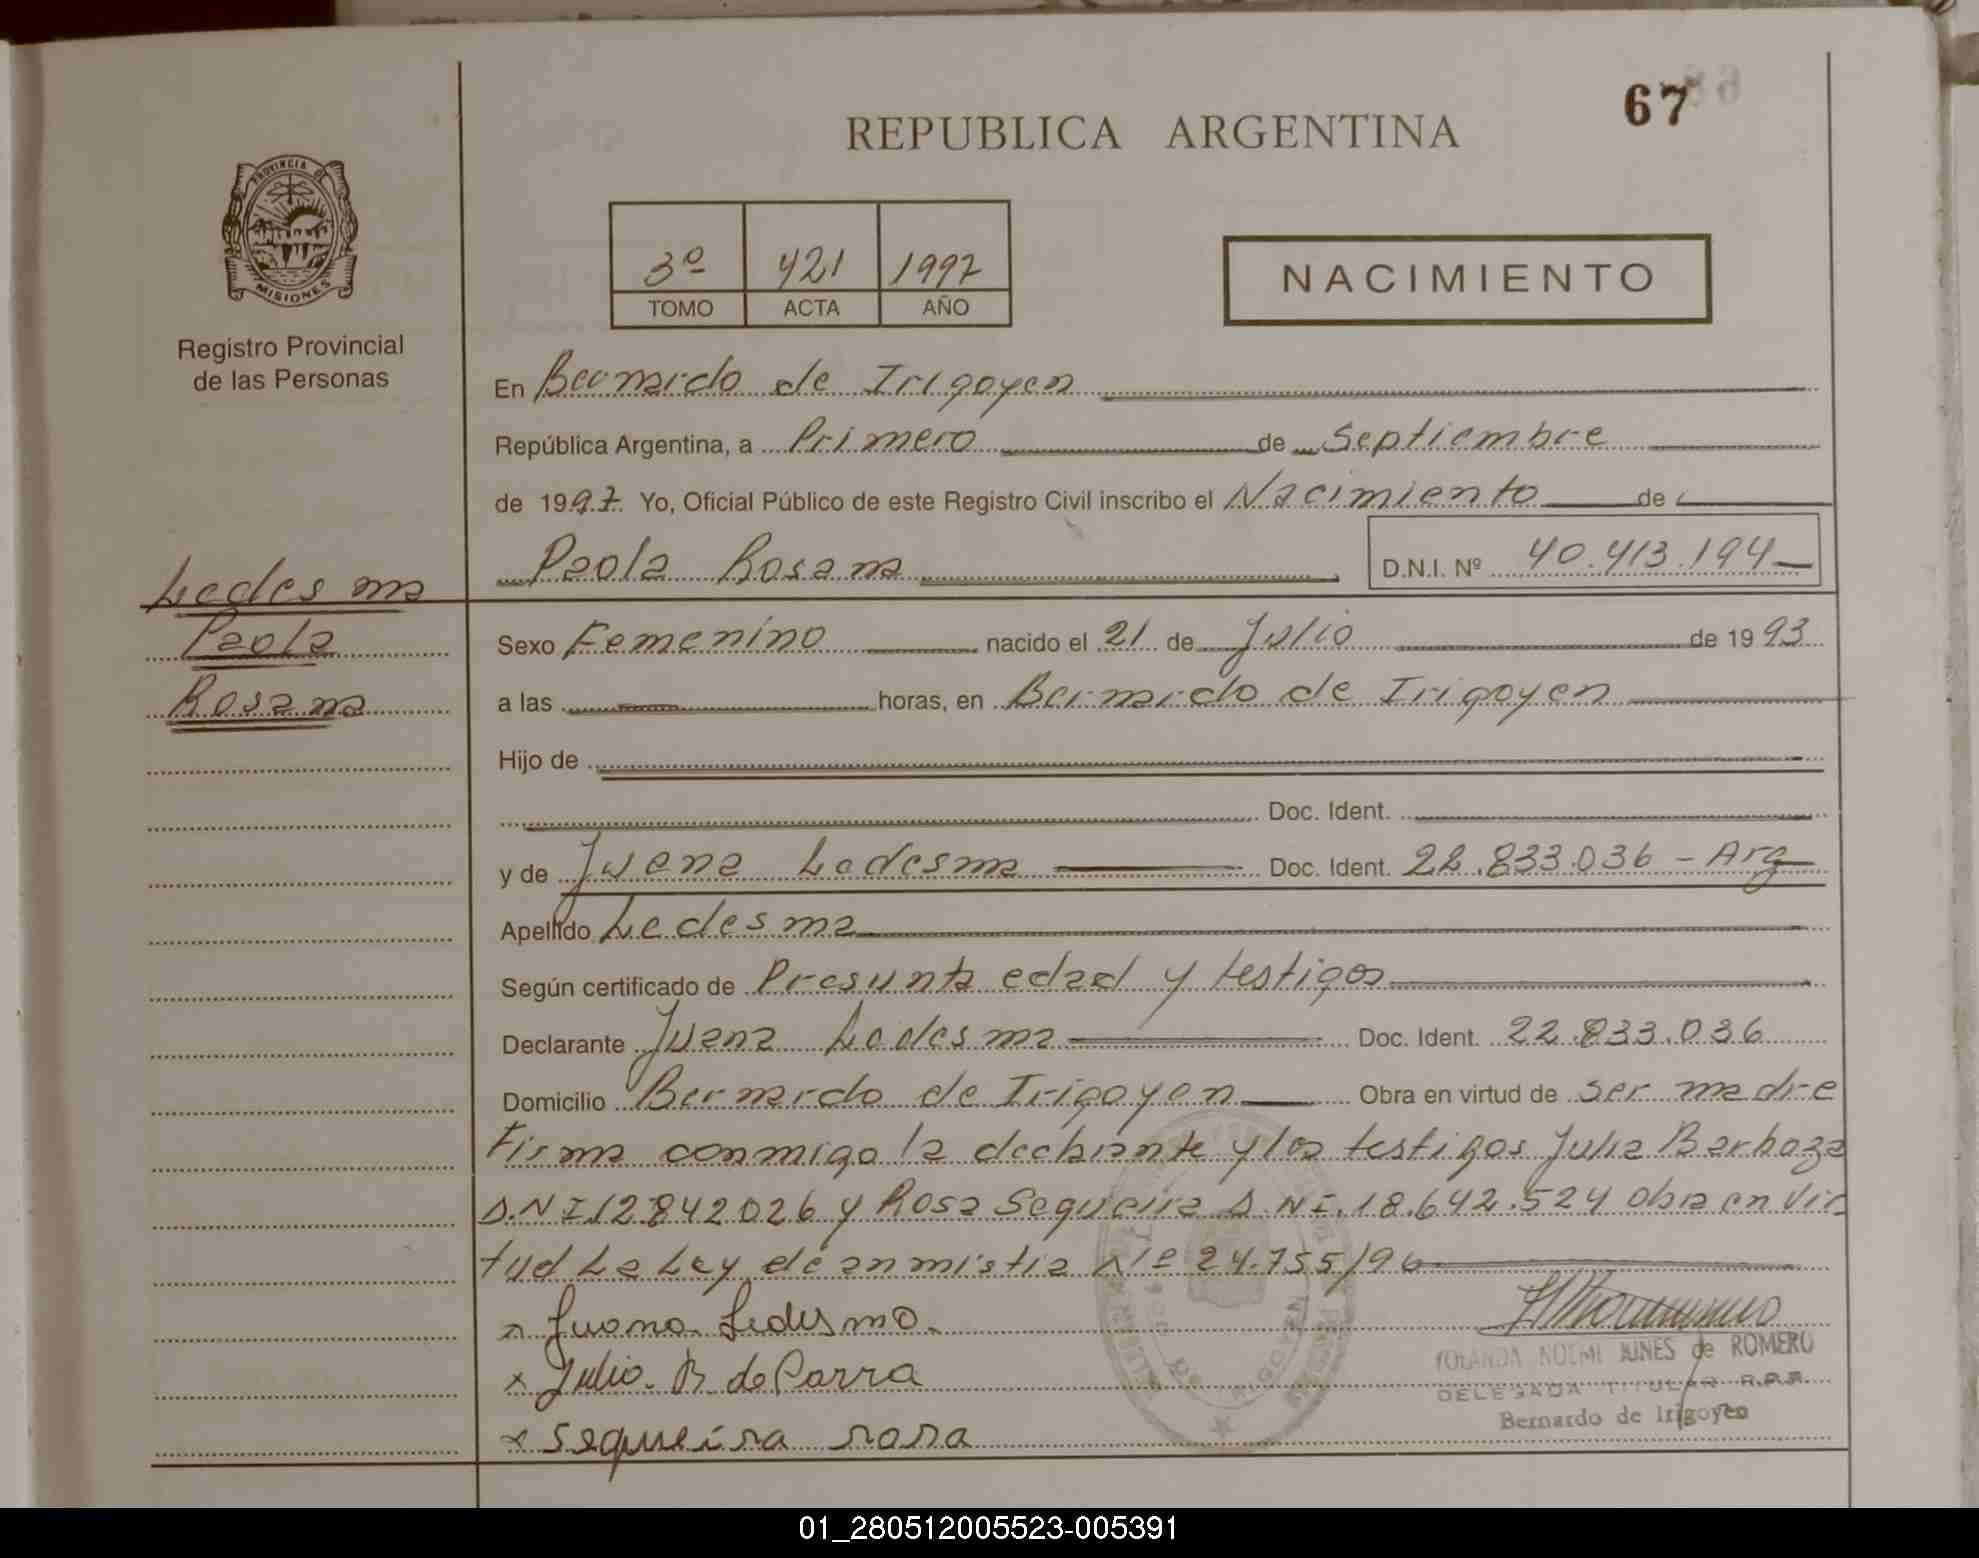 67
REPUBLICA ARGENTINA
PROVINCIA DE
MISIONES
Registro Provincial
de las Personas
3º 421 1997
TOMO ACTA AÑO
NACIMIENTO
En Bernardo de Irigoyen
República Argentina, a Primero de Septiembre
de 1997. Yo, Oficial Público de este Registro Civil inscribo el Nacimiento de
Paola Rosana D.N.I. Nº 40.413.194
Ledesma
Paola
Rosana
Sexo Femenino nacido el 21 de Julio de 1993
a las horas, en Bernardo de Irigoyen
Hijo de
Doc. Ident.
y de Juana Ledesma Doc. Ident. 22.833.036 - Arg
Apellido Ledesma
Según certificado de Presunta edad y testigos
Declarante Juana Ledesma Doc. Ident. 22.833.036
Domicilio Bernardo de Irigoyen Obra en virtud de ser madre
Firma conmigo la declarante y los testigos Julia Barboza
D.N.I 12842026 y Rosa Sequeira D.N.I. 18.642.524 obra en vir
tud La Ley de anmistia Nº 24.755/96
x Juana Ledesma.
x Julia. B. de Parra
x Sequeira rosa
YOLANDA NOEMI JUNES de ROMERO
DELEGADA TITULAR R.P.P.
Bernardo de Irigoyen
01_280512005523-005391